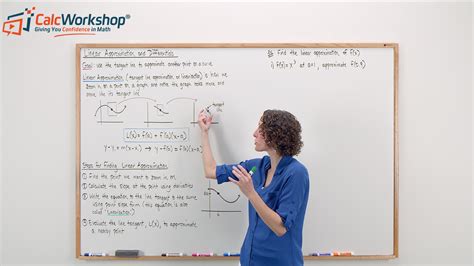 CalcWorkshop®
Giving You Confidence in Math
Linear Approximation and Differentials
Goal: use the tangent line to approximate another point on a curve.
Linear Approximation (tangent line approximation, or linearization) is when we
zoom in on a point on a graph, and notice the graph looks more and
more like its tangent line.
tangent
line
L(x) = f(a) + f'(a)(x-a)
Steps for Finding Linear Approximation
① Find the point we want to zoom in on.
② Calculate the slope at the point using derivatives
③ Write the equation to the line tangent to the curve
using point slope form (this equation is also
called "Linearization")
④ Evaluate the line tangent, L(x), to approximate
a nearby point
Find the linear approximation of f(x)